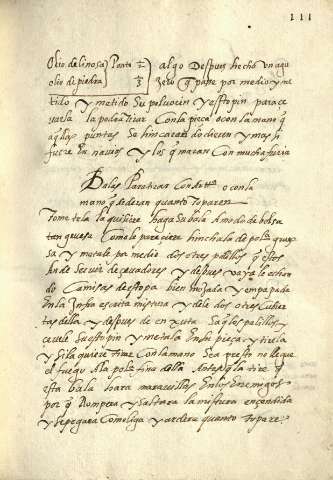 111
Olio de linosa } Parte 2/3 algo Despues hecho un agu
olio de piedra } 1/3 Zero q pase por medio y me
tido y metido Su poluorin y estopin para ce
uarla la podra tirar Con la pieça o con la mano q
aqllas puntas Se hincaran do dieren y mas si
fuere En nauios y los q maran Con mucha furia
Balas Para tirar Con Artta o con la
mano q ardaran quanto toparen
Tome tela la quisiere haga Su bola A modo de bolsa
tan gruesa Como le pareciere hinchala de polª grue
sa y metale por medio dos o tres palillos q estos
An de Seruir de çeuadores y despues vaya le echan
do Camisas de estopa bien mojada y empapada
En la Infra escrita mistura y dele dos o tres Cubier
tas della y despues de en xuta Saq los palillos
ceuele Su estopin y metala En Su pieça y tirela
y Si la quisiere tirar Con la mano Sea presto no llegue
el fuego A la polª fina della Antes q la tire q
esta bala hara marauillas En los Enemigos
por q Rompera y Saltara la mistura ençendida
y Se pegara Como liga y ardera quanto topare.